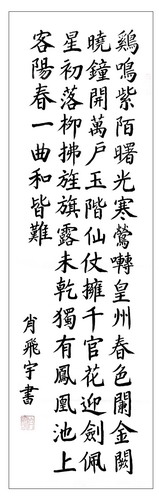 鷄鳴紫陌曙光寒鶯囀皇州春色闌金闕
曉鐘開萬户玉階仙仗擁千官花迎劍佩
星初落柳拂旌旗露未乾獨有鳳凰池上
客陽春一曲和皆難
肖飛宇書